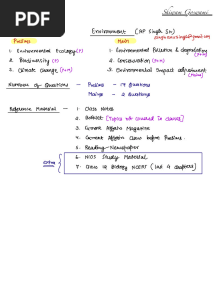 PDF
Shivam Goswami
Environment (AP Singh Sir)
Prelims
Main
1. Environmental Ecology (P)
2. Biodiversity (P)
3. Climate change (P+M)
1. Environmental Pollution & degradation (P+M)
2. Conservation (P+M)
3. Environmental Impact assessment (Mains)
Number of Questions — Prelims — 17 Questions
Mains — 2 Questions
Reference Material — 1. Class Notes
2. Booklet [Topics not covered in class]
3. Current Affairs Magazine
4. Current Affairs Class before Prelims.
5. Reading Newspaper
Extra
6. NIOS Study Material
7. Class 12 Biology NCERT (last 4 chapters)